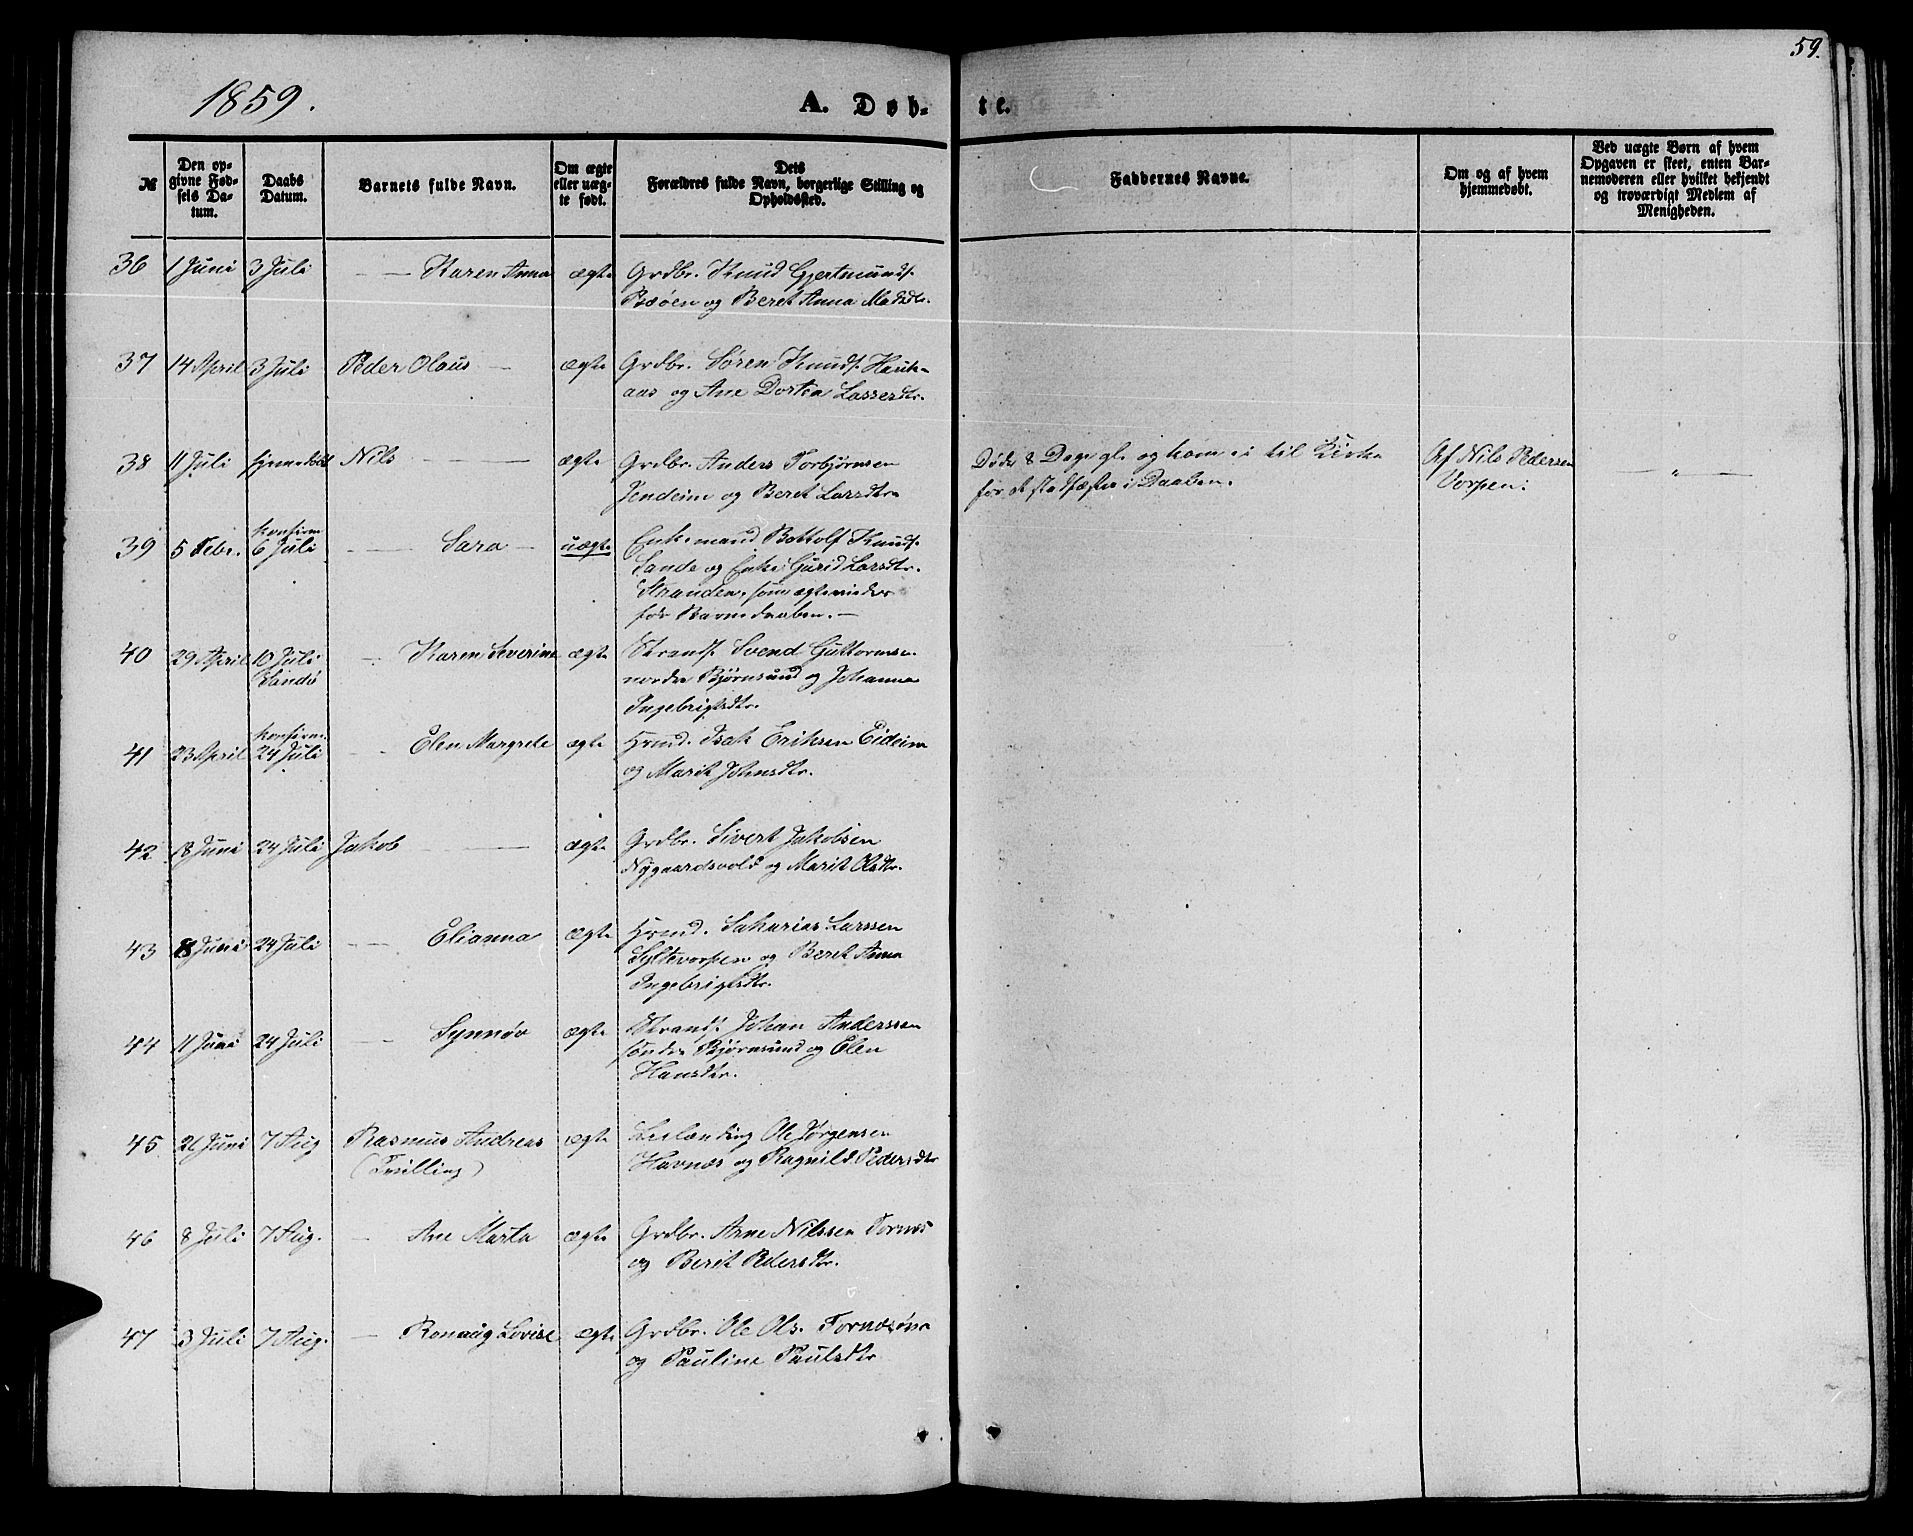 59.
1859.
A. Døb-
te.
№
Den op-
givne Fød-
sels Da-
tum.
Daabs
Datum.
Barnets fulde Navn.
Om ægte
eller uæg-
te født.
Dets
Forældres fulde Navn, borgerlige Stilling og
Opholdssted.
Faddernes Navne.
Om og af hvem
hjemmedøbt.
Ved uægte Børn af hvem
Opgaven er skeet, enten Bar-
nemoderen eller hvilket bekjendt
og troværdigt Medlem af
Menigheden.
36 1 Juni 3 Juli — — Karen Anna ægte Grdbr. Knud Gjertmunds.
og Beret Anna Madsdtr.
37 14 April 3 Juli Peder Olaus — ægte Grdbr. Søren Knuds. Hauk-
aas og Ane Dortea Lassesdtr.
38 11 Juli hjemedøbt Nils — ægte Grdbr. Anders Torbjørnsen
Jendeim og Beret Larsdtr.
Døde 8 Dage gl. og kom ei til Kirke
før at stadfæstes i Daaben.
Af Nils Pedersen
Vorpen.
— " —
39 5 Febr. konfirm.
6 Juli — Sara — uægte Enkemand Bottolf Knuds.
Sande og Enke Gurid Larsdtr.
Stranden, som ægtevieder
før Barnedaaben. —
40 29 April 10 Juli
Sandø — Karen Severine ægte Strands. Svend Guttormsen
nordre Bjørnsund og Johanna
Ingebrigtsdtr.
41 23 April konfirm.
24 Juli — Elen Margrete ægte Hmd. Isak Eriksen Eideim
og Marit Johnsdtr.
42 18 Juni 24 Juli Jakob — ægte Grdbr. Sivert Jakobsen
Nygaardsvold og Marit Olsdtr.
43 8 Juni 24 Juli — Elianna ægte Hmd. Sakarias Larssen
Syltevorpen og Beret Anna
Ingebrigtsdtr.
44 11 Juni 24 Juli — Synnøv ægte Strands. Johan Anderssen
søndre Bjørnsund og Elen
Hansdtr.
45 26 Juni 7 Aug Rasmus Andreas ægte Leslænding Ole Jørgensen
(Tvilling) Havnæs og Ragnild Pedersdtr
46 8 Juli 7 Aug. — Ane Marta ægte Grdbr. Arne Nilssen Tornes
og Berit Pedersdtr.
47 3 Juli 7 Aug. — Ronnaug Lovise ægte Grdbr. Ole Ols. Tornæsøen
og Pauline Paulsdtr